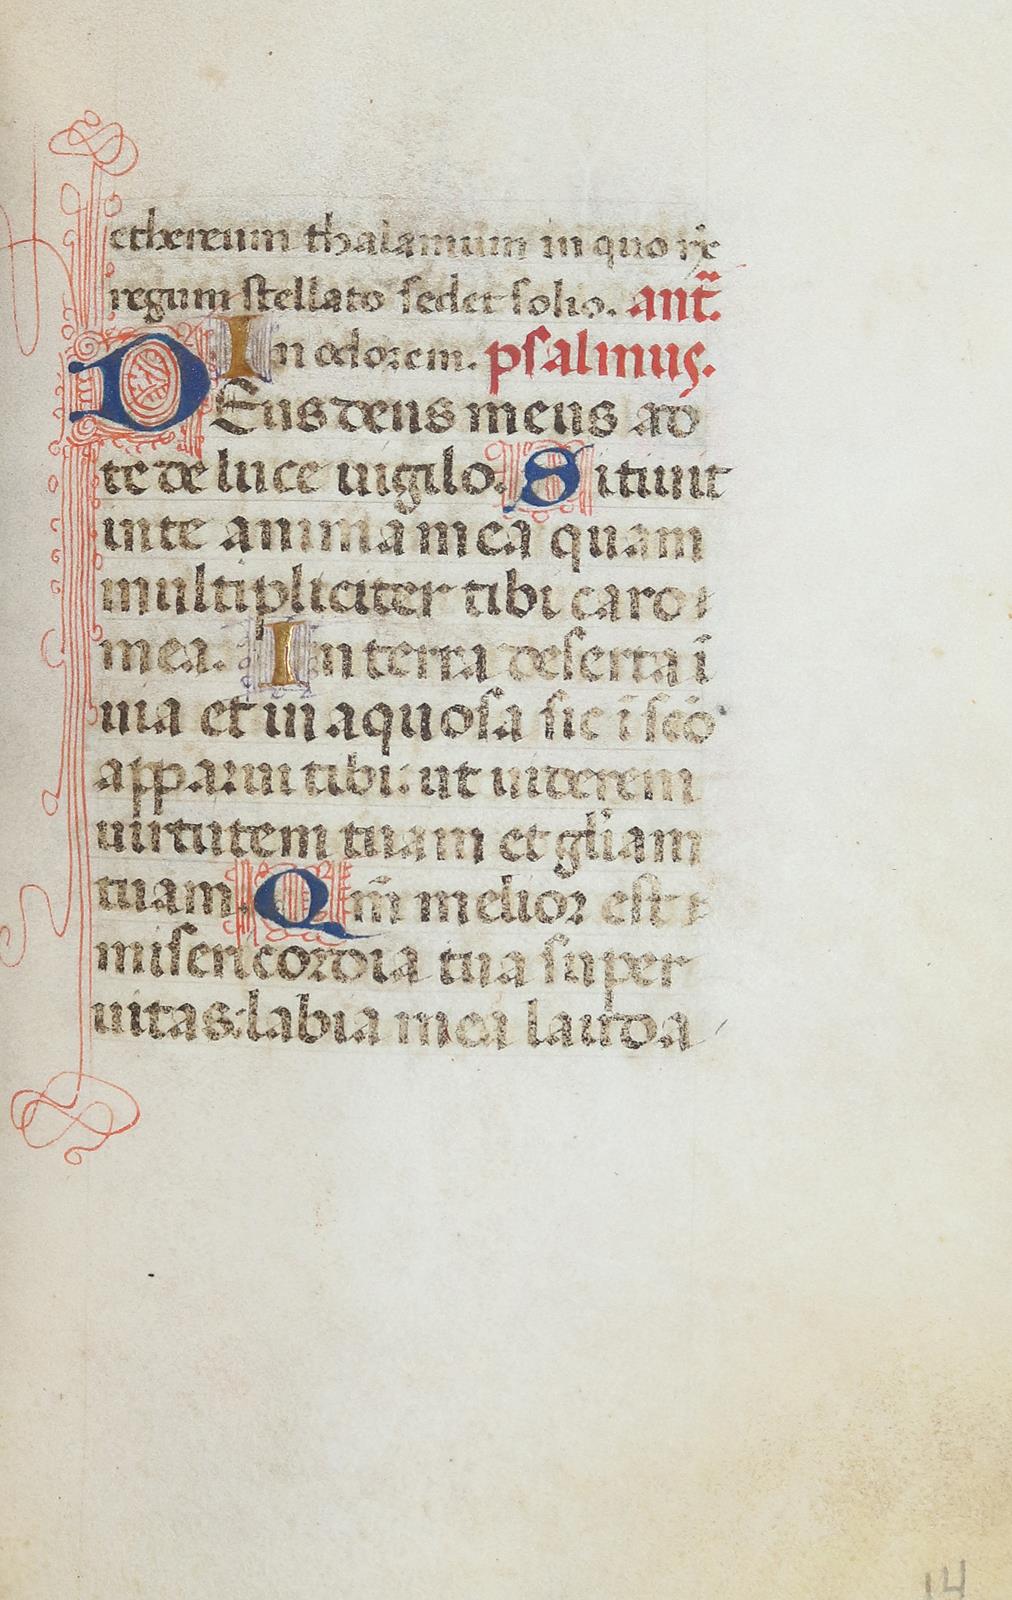 ethereum thalamum in quo rex
regum stellato sedet solio. ant̄.
In odorem. psalmus.
DEus deus meus ad
te de luce uigilo. Sitiuit
in te anima mea quam
multipliciter tibi caro
mea. In terra deserta ī
uia et in aquosa sic ī scō
apparui tibi: ut uiderem
uirtutem tuam et gl̄iam
tuam. Qm̄ melior est
misericordia tua super
uitas: labia mea lauda
14